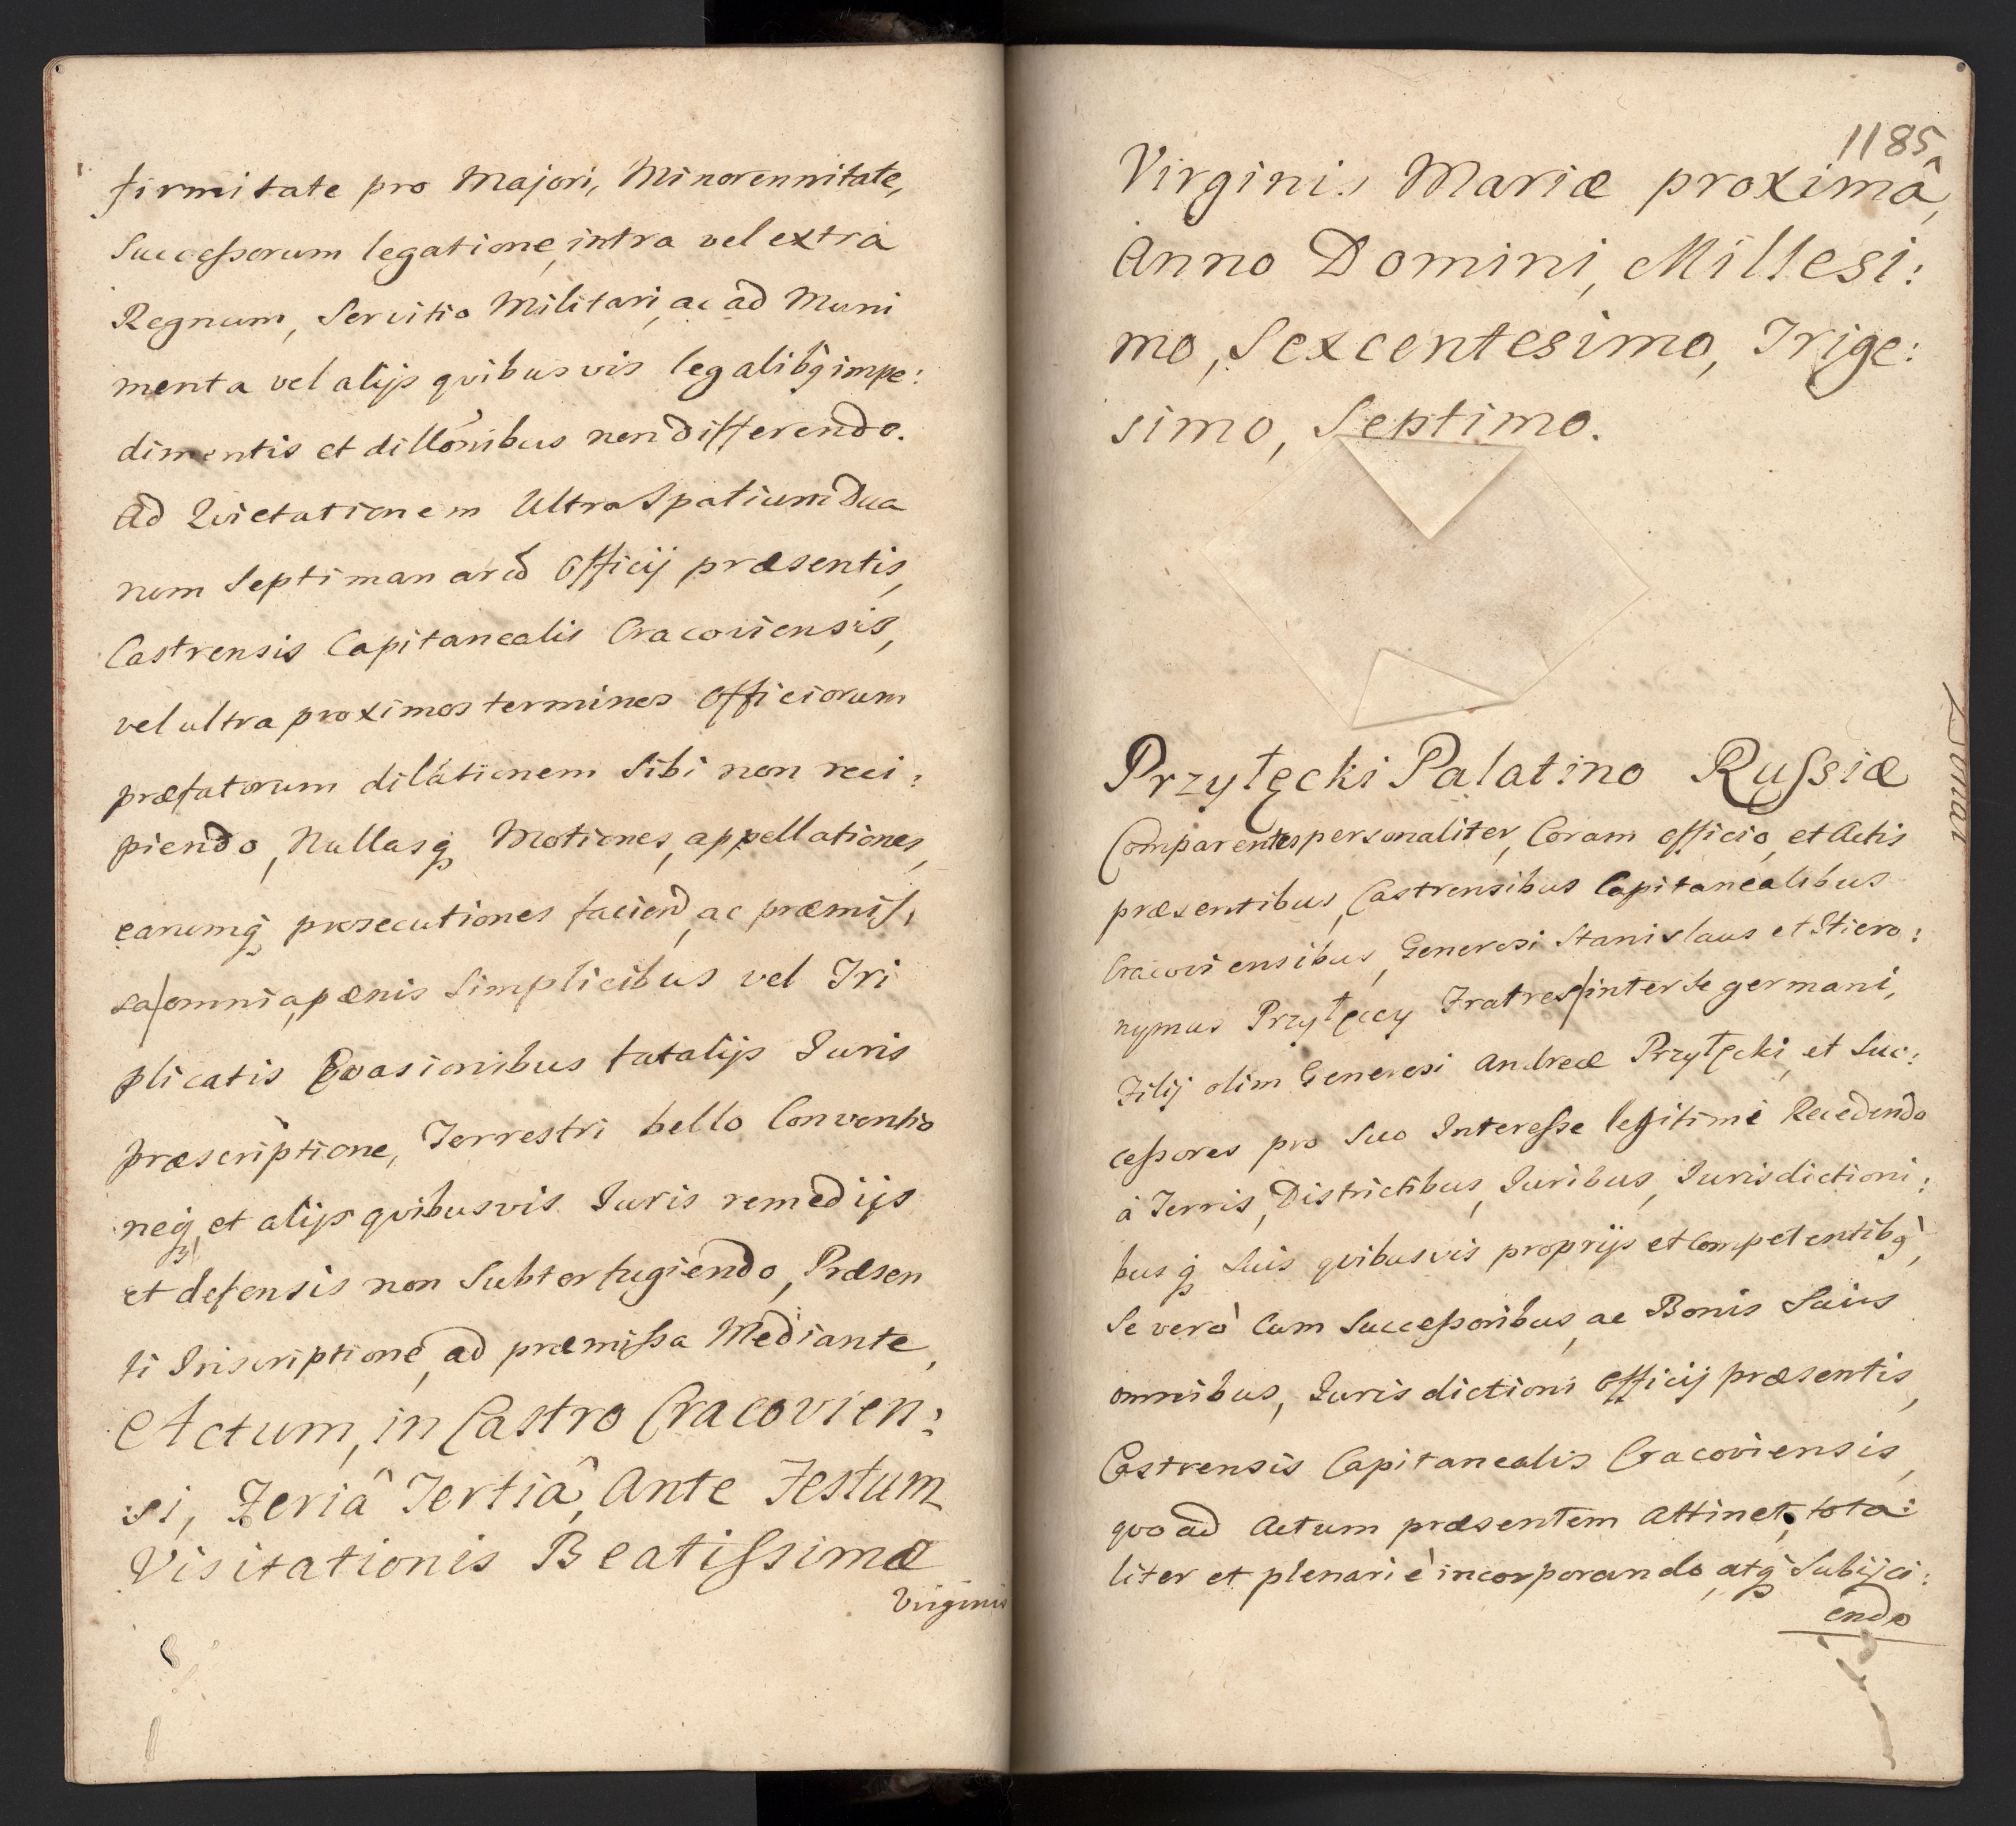 firmitate pro Majori, Minorennitate,
Succeſsorum legatione, intra vel extra
Regnum, Servitio Militari, ac ad Muni
menta vel alijs qvibusvis legalibq impe:
dimentis et dillõnibus non differendo.
Ad Qvietationem Ultra Spatium Dua
rum Septimanarũ Officij præsentis,
Castrensis Capitanealis Cracoviensis,
vel ultra proximos terminos Officiorum
præfatorum dilationem Sibi non reci:
piendo, Nullasq Motiones, appellationes,
earumq prosecutiones faciend, ac præmiſ,
sa/omnia, pænis Simplicibus vel Tri
plicatis Evasionibus fatalijs Iuris
præscriptione, Terrestri bello Conventio
neq, et alijs qvibusvis Iuris remedijs
et defensis non Subterfugiendo, Præsen
ti Inscriptione, ad præmiſsa Mediante,
Actum, in Castro Cracovien:
si, Feriâ Tertiâ, Ante Festum
Visitationis Beatiſsimæ
Virginis
1185
Virginis Mariæ proximâ,
Anno Domini, Millesi:
mo, Sexcentesimo, Trige:
simo, Septimo.
Przyłęcki Palatino Ruſsiæ
Comparentes personaliter, Coram officio, et Actis
præsentibus, Castrensibus Capitanealibus
Cracoviensibus, Generosi Stanislaus et Hiero:
nymus Przyłęccy Fratres/inter se germani,
Filij olim Generosi Andreæ Przyłęcki, et Suc:
ceſsores pro Suo Intereſse legitimi Recedendo
à Terris, Districtibus, Iuribus, Iurisdictioni:
busq Suis qvibusvis proprijs et Competentibq,
Se verò Cum Succeſsoribus, ac Bonis Suius
omnibus, Iurisdictioni Officij præsentis,
Castrensis Capitanealis Cracoviensis,
qvo ad Actum præsentem attinet, tota:
liter et plenariè incorporando, atq Subijci:
endo